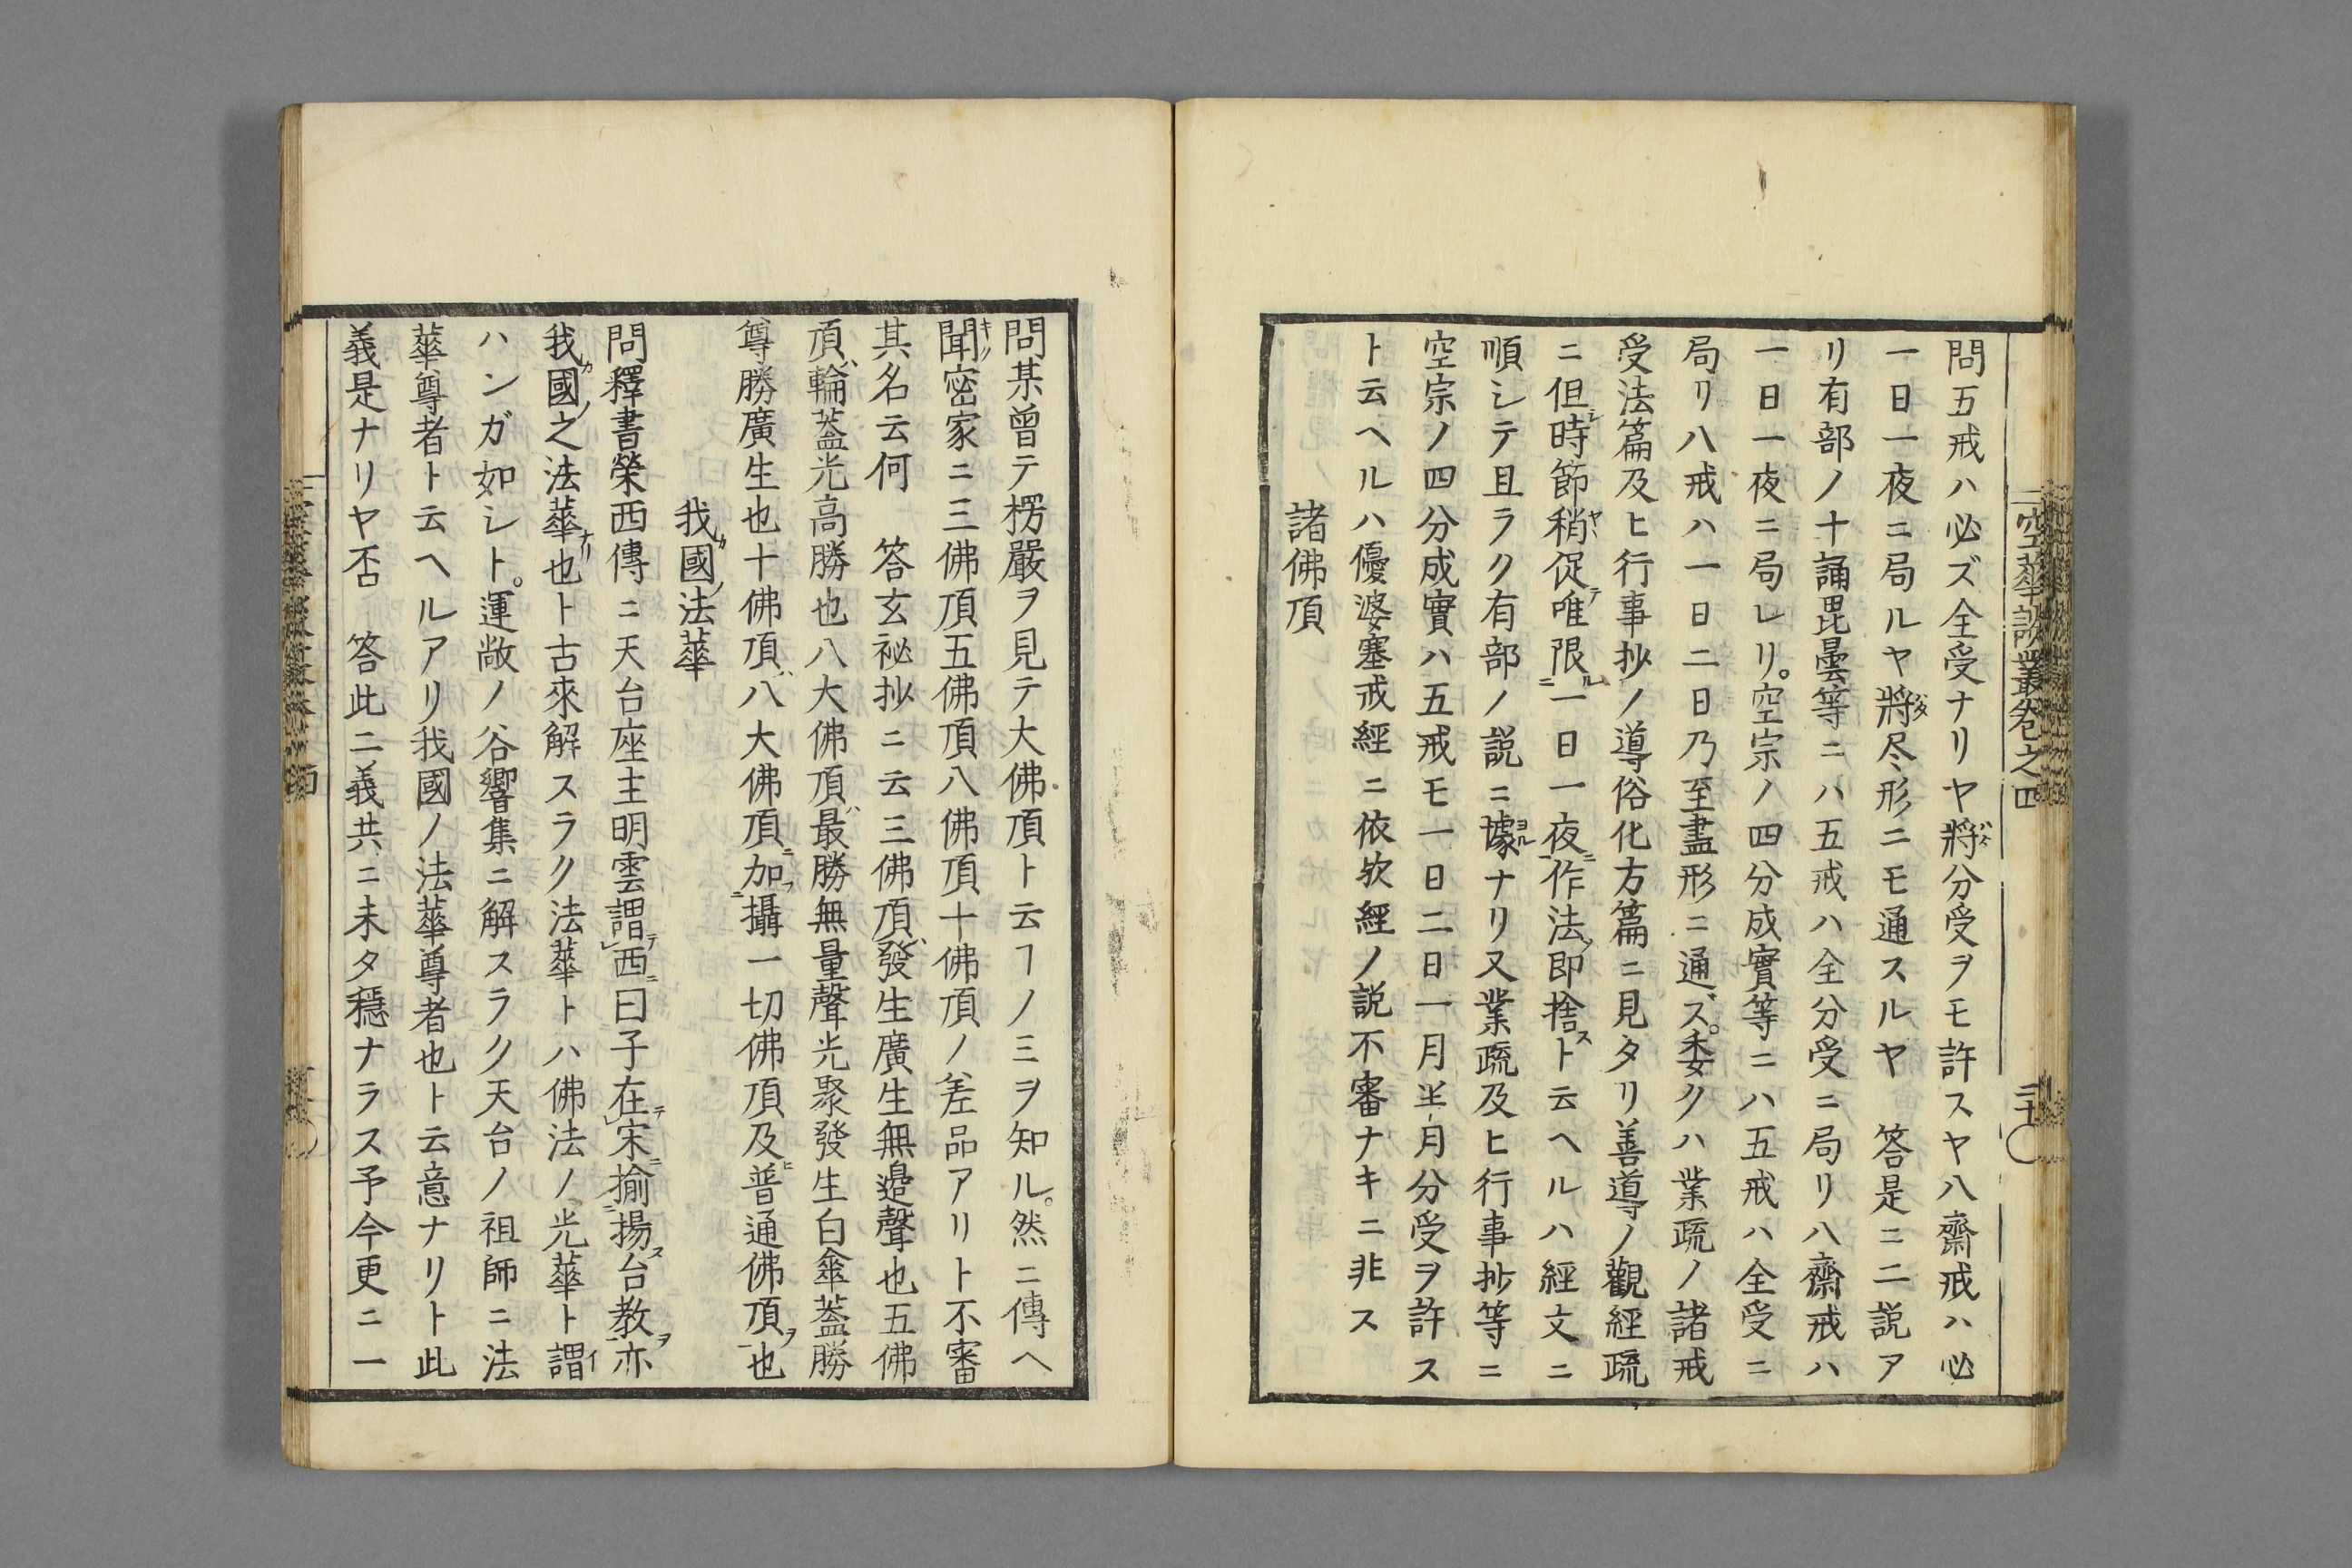 空華談叢卷之四
三十
問五戒ハ必ズ全受ナリヤ將分受ヲモ許スヤ八齋戒ハ必
一日一夜ニ局ルヤ將尽形ニモ通スルヤ　答是ニ二説ア
リ有部ノ十誦毘曇等ニハ五戒ハ全分受ニ局リ八齋戒ハ
一日一夜ニ局レリ。空宗ノ四分成實等ニハ五戒ハ全受ニ
局リ八戒ハ一日二日乃至盡形ニ通ズ。委クハ業疏ノ諸戒
受法篇及ヒ行事抄ノ導俗化方篇ニ見タリ善導ノ觀經疏
ニ但時節稍促唯限一日一夜作法即捨ト云ヘルハ經文ニ
順シテ且ラク有部ノ説ニ據ナリ又業疏及ヒ行事抄等ニ
空宗ノ四分成實ハ五戒モ一日二日一月半月分受ヲ許ス
ト云ヘルハ優婆塞戒經ニ依欤經ノ説不審ナキニ非ス
諸佛頂
問某曾テ楞嚴ヲ見テ大佛頂ト云ヿノミヲ知ル。然ニ傳ヘ
聞密家ニ三佛頂五佛頂八佛頂十佛頂ノ差品アリト不審
其名云何　答玄祕抄ニ云三佛頂發生廣生無邉聲也五佛
頂輪蓋光高勝也八大佛頂最勝無量聲光聚發生白傘蓋勝
尊勝廣生也十佛頂八大佛頂加攝一切佛頂及普通佛頂也
我國法華
問釋書榮西傳ニ天台座主明雲謂西曰子在宋揄揚台教亦
我國之法華也ト古來解スラク法華トハ佛法ノ光華ト謂
ハンガ如シト。運敞ノ谷響集ニ解スラク天台ノ祖師ニ法
華尊者ト云ヘルアリ我國ノ法華尊者也ト云意ナリト此
義是ナリヤ否　答此二義共ニ未タ穩ナラス予今更ニ一